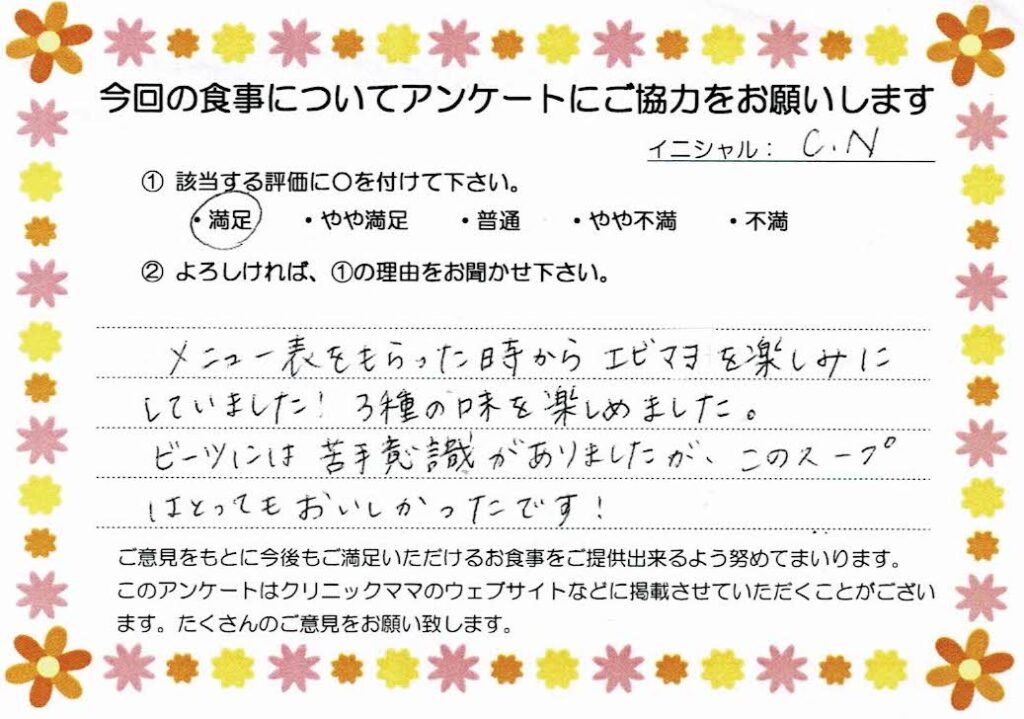 今回の食事についてアンケートにご協力をお願いします
イニシャル： C.N
① 該当する評価に〇を付けて下さい。
・満足 ・やや満足 ・普通 ・やや不満 ・不満
② よろしければ、①の理由をお聞かせ下さい。
メニュー表をもらった時から エビマヨを楽しみに
していました！ 3種の味を楽しめました。
ビーツには 苦手意識がありましたが、このスープ
はとってもおいしかったです！
ご意見をもとに今後もご満足いただけるお食事をご提供出来るよう努めてまいります。
このアンケートはクリニックママのウェブサイトなどに掲載させていただくことがござい
ます。たくさんのご意見をお願い致します。